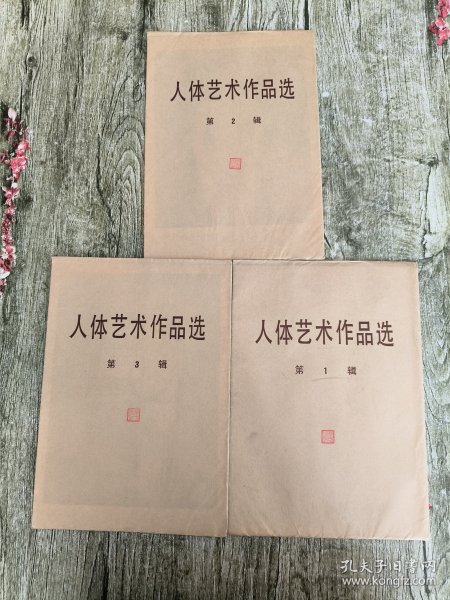 人体艺术作品选
第 2 辑
人体艺术作品选
第 3 辑
人体艺术作品选
第 1 辑
孔夫子旧书网
www.kongfz.com